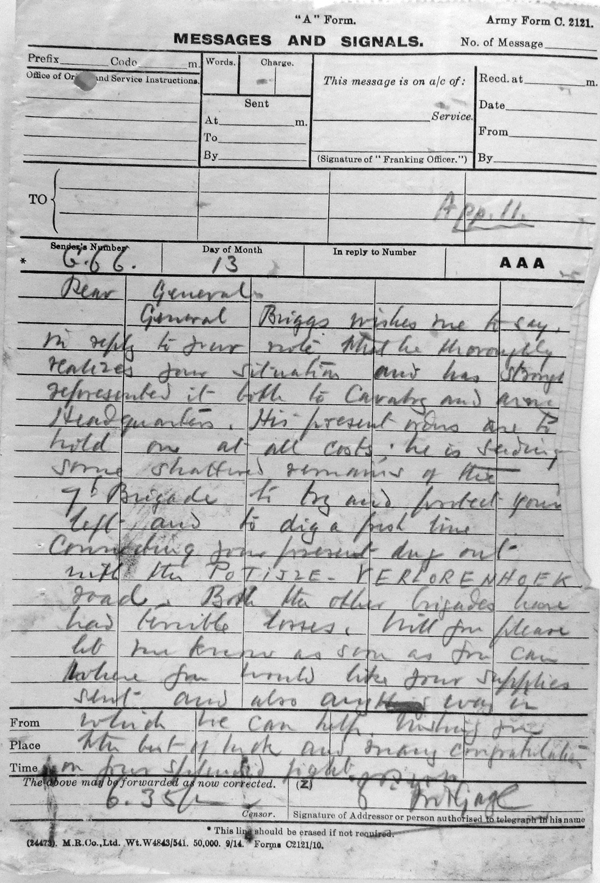 "A" Form.
Army Form C. 2121.
MESSAGES AND SIGNALS.
No. of Message
Prefix Code m.
Words. Charge.
This message is on a/c of:
Recd. at m.
Office of Origin and Service Instructions.
Sent
Date
At m.
Service.
From
To
By
(Signature of "Franking Officer.")
By
TO
App. 11.
Sender's Number
Day of Month
In reply to Number
AAA
* G.66. 13
Dear General
General Briggs wishes me to say,
in reply to your note that he thoroughly
realizes your situation and has strongly
represented it both to Cavalry and army
Headquarters. His present orders are to
hold on at all costs; he is sending
some shattered remains of the
7th Brigade to try and protect your
left and to dig a fresh line
connecting your present dug out
with the POTIJZE - VERLORENHOEK
road. Both the other brigades have
had terrible losses. Will you please
let me know as soon as you can
where you would like your supplies
sent and also any way in
From which we can help wishing you
Place the best of luck and many congratulations
Time on your splendid fight
The above may be forwarded as now corrected. (Z)
6.35
Censor.
Signature of Addressor or person authorised to telegraph in his name
* This line should be erased if not required.
(24473). M.R.Co.,Ltd. Wt.W4843/541. 50,000. 9/14. Forms C2121/10.